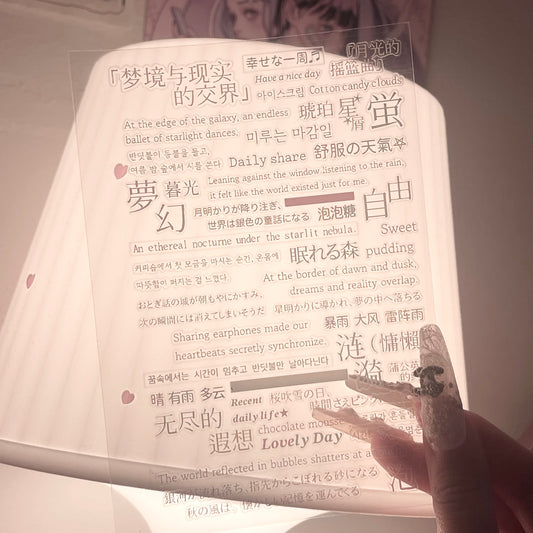 「梦境与现实
的交界」
幸せな一周♬
『月光的
摇篮曲』
Have a nice day
아이스크림 Cotton candy clouds
At the edge of the galaxy, an endless
ballet of starlight dances.
琥珀
星屑
蛍
미루는 마감일
반딧불이 등불을 들고,
여름 밤 숲에서 시를 쓴다
Daily share
舒服の天氣
Leaning against the window listening to the rain,
it felt like the world existed just for me.
夢幻
暮光
月明かりが降り注ぎ、
世界は銀色の童話になる
泡泡糖
自由
An ethereal nocturne under the starlit nebula.
Sweet
pudding
커피숍에서 첫 모금을 마시는 순간, 온몸에
따뜻함이 퍼지는 걸 느꼈다.
眠れる森
At the border of dawn and dusk,
dreams and reality overlap.
おとぎ話の城が朝もやにかすみ、
次の瞬間には消えてしまいそうだ
早明かりに導かれ、夢の中へ落ちる
Sharing earphones made our
heartbeats secretly synchronize.
暴雨 大风 雷阵雨
涟漪
(慵懒
的
蒲公英
꿈속에서는 시간이 멈추고 반딧불만 날아다닌다
晴 有雨 多云
Recent
daily life★
桜吹雪の日、
時間さえピンク
无尽的
遐想
chocolate mousse
Lovely Day
The world reflected in bubbles shatters at a
銀河がこぼれ落ち、指先からこぼれる砂になる
秋の風は、懐かしい記憶を運んでくる